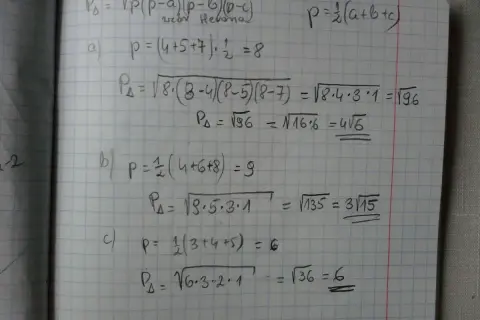 P△ = √p(p-a)(p-b)(p-c) p = ½(a+b+c)
a) p = (4+5+7)·½ = 8
P△ = √8·(8-4)(8-5)(8-7) = √8·4·3·1 = √96
P△ = √96 = √16·6 = 4√6
b) p = ½(4+6+8) = 9
P△ = √9·5·3·1 = √135 = 3√15
c) p = ½(3+4+5) = 6
P△ = √6·3·2·1 = √36 = 6